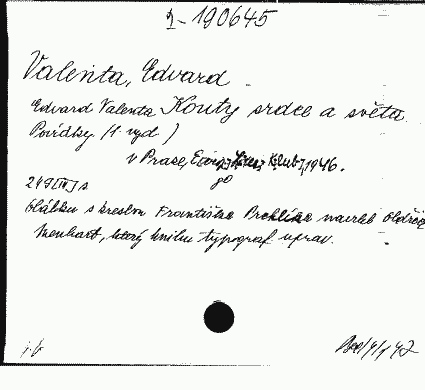 2-190645
Valenta, Edvard
Edvard Valenta Kouty srdce a světa.
Povídky. (1. vyd.)
v Praze, Klub, 1946.
249 [IV] s
Obálku s kresbou Františka navrhl Oldřich
Menhart, který knihu typograf. uprav.